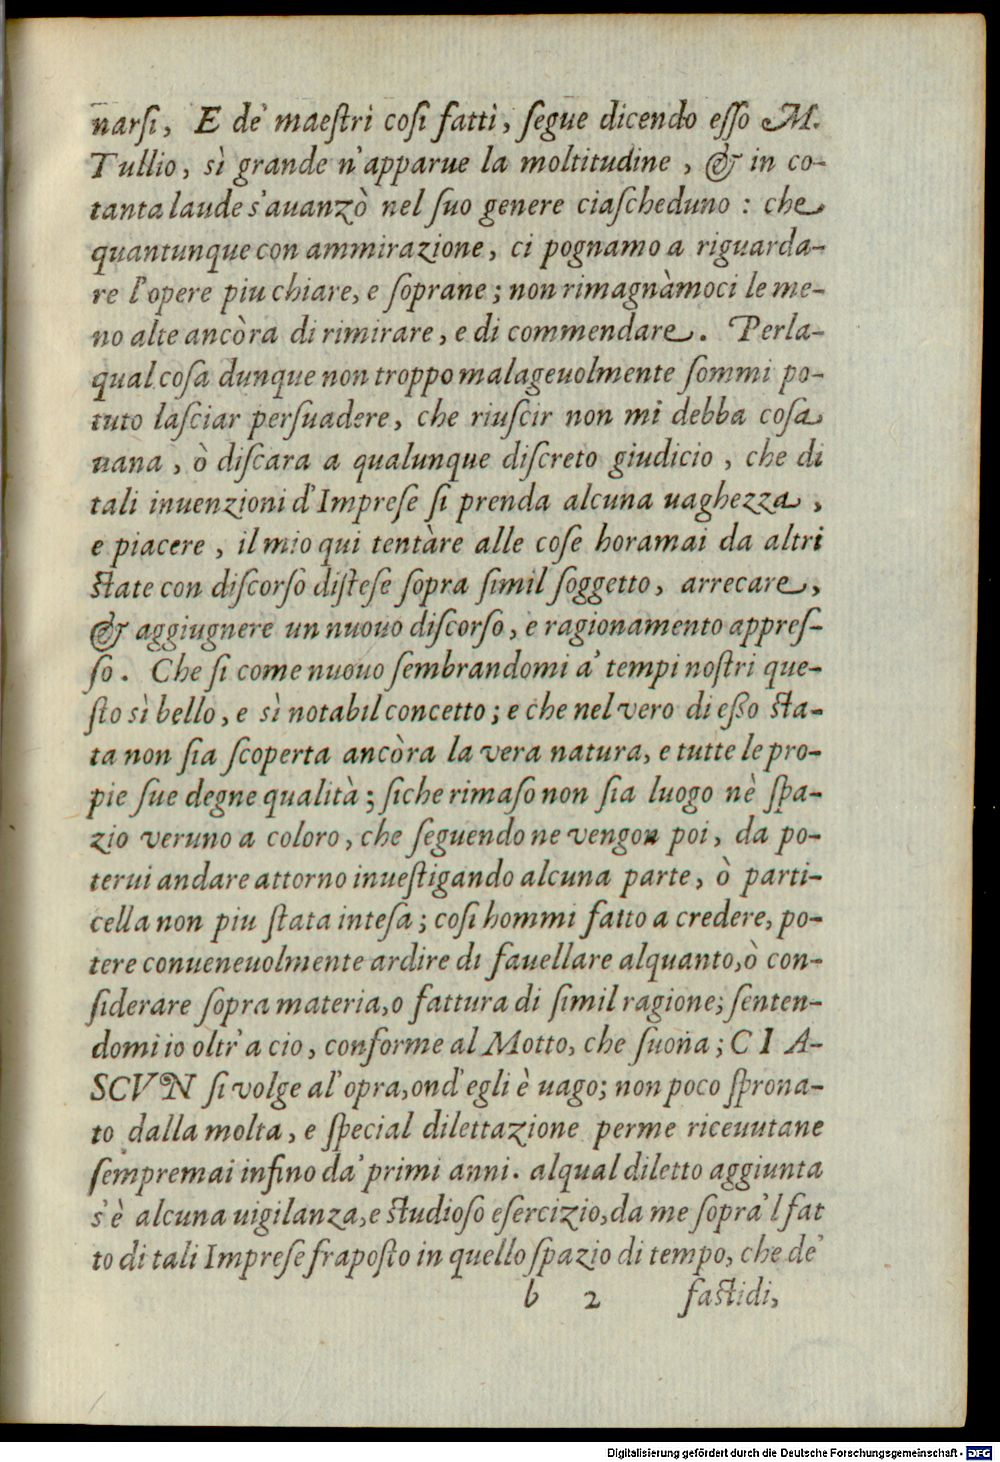 narſi, E de' maeſtri coſi fatti, ſegue dicendo eſſo M.
Tullio, sì grande n'apparue la moltitudine, & in co-
tanta laude s'auanzò nel ſuo genere ciaſcheduno: che
quantunque con ammirazione, ci pognamo a riguarda-
re l'opere piu chiare, e ſoprane; non rimagnàmoci le me-
no alte ancòra di rimirare, e di commendare. Perla-
qual coſa dunque non troppo malageuolmente ſommi po-
tuto laſciar perſuadere, che riuſcìr non mi debba coſa
uana, ò diſcara a qualunque diſcreto giudicio, che di
tali inuenzioni d'Impreſe ſi prenda alcuna uaghezza,
e piacere, il mio qui tentàre alle coſe horamai da altri
ſtate con diſcorſo diſteſe ſopra ſimil ſoggetto, arrecare,
& aggiugnere un nuouo diſcorſo, e ragionamento appreſ-
ſo. Che ſi come nuouo ſembrandomi a' tempi noſtri que-
ſto sì bello, e sì notabil concetto; e che nel vero di eßo ſta-
ta non ſia ſcoperta ancòra la vera natura, e tutte le pro-
pie ſue degne qualità; ſiche rimaſo non ſia luogo nè ſpa-
zio veruno a coloro, che ſeguendo ne vengon poi, da po-
terui andare attorno inueſtigando alcuna parte, ò parti-
cella non piu ſtata inteſa; coſi hommi fatto a credere, po-
tere conueneuolmente ardire di fauellare alquanto, ò con-
ſiderare ſopra materia, o fattura di ſimil ragione; ſenten-
domi io oltr' a cio, conforme al Motto, che ſuona; CIA-
SCVN ſi volge al'opra, ond'egli è uago; non poco ſprona-
to dalla molta, e ſpecial dilettazione perme riceuutane
ſempremai infino da' primi anni. alqual diletto aggiunta
s'è alcuna uigilanza, e ſtudioſo eſercizio, da me ſopra'l fat
to di tali Impreſe frapoſto in quello ſpazio di tempo, che de'
b 2 faſtidi,
Digitalisierung gefördert durch die Deutsche Forschungsgemeinschaft - DFG